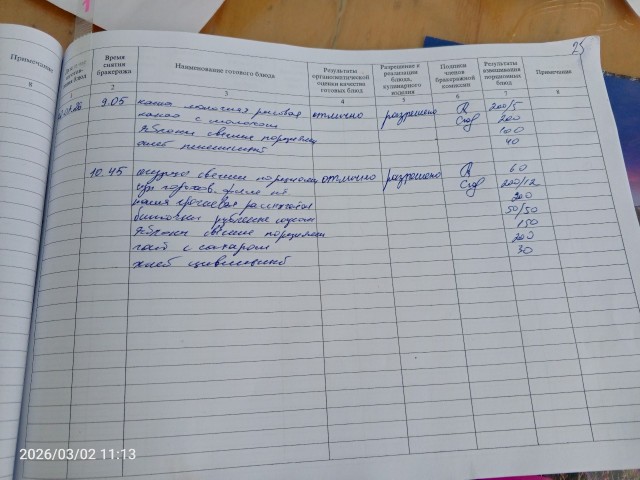 25
Примечание
Время снятия бракеража
Наименование готового блюда
Результаты органолептической оценки качества готовых блюд
Разрешение к реализации блюда, кулинарного изделия
Подписи членов бракеражной комиссии
Результаты взвешивания порционных блюд
Примечание
8
2 3 4 5 6 7 8
9.05 каша молочная рисовая отлично разрешено 200/5
какао с молоком 200
яблоки свежие порциями 100
хлеб пшеничный 40
10.45 огурцы свежие порциями отлично разрешено 60
суп горохов. 200/12
каша гречневая рассыпчатая 200
рубленые 50/50
яблоки свежие порциями 150
чай с сахаром 200
хлеб 30
2026/03/02 11:13